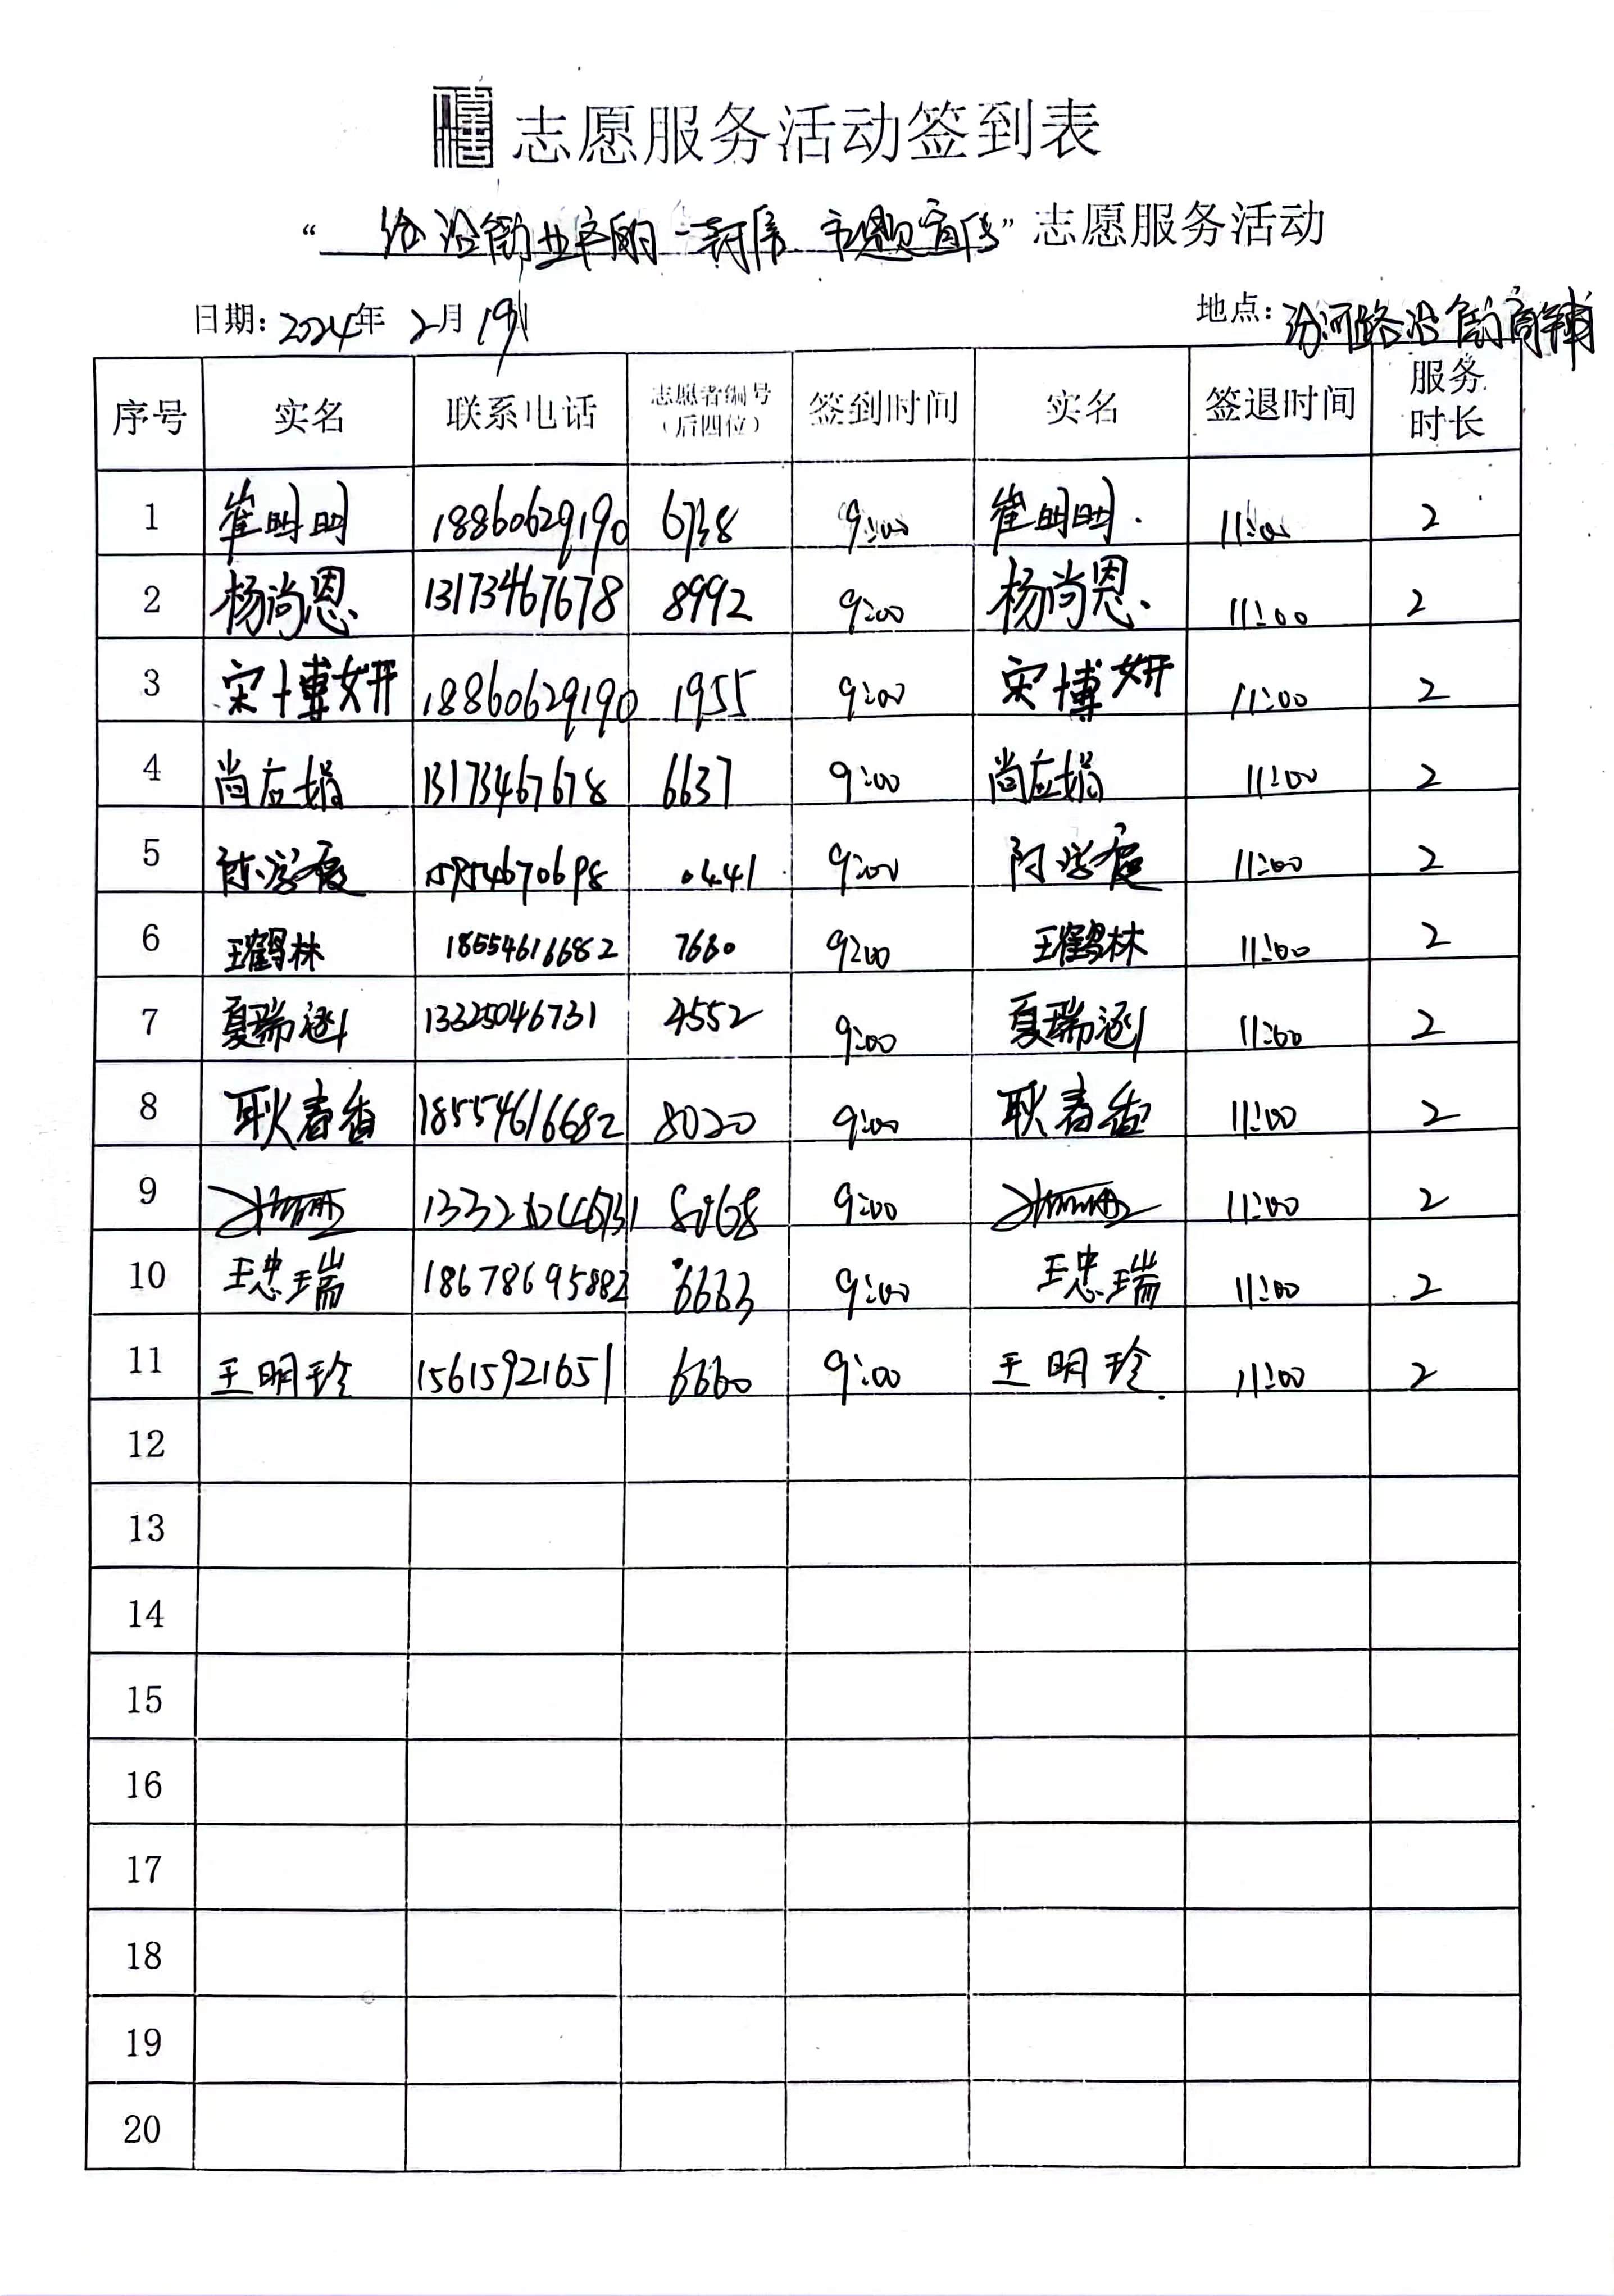 志愿服务活动签到表
“给沿街业户的一封信 主题宣传”志愿服务活动
日期:2024年 2月 19日 地点:汾河路沿街商铺
序号 实名 联系电话 志愿者编号(后四位) 签到时间 实名 签退时间 服务时长
1 崔明明 18860629190 6738 9:00 崔明明 11:00 2
2 杨尚恩 13173467678 8992 9:00 杨尚恩 11:00 2
3 宋博妍 18860629190 1955 9:00 宋博妍 11:00 2
4 尚应娟 13173467678 6637 9:00 尚应娟 11:00 2
5 15954670698 0441 9:00 11:00 2
6 王鹤林 18554616682 7660 9:00 王鹤林 11:00 2
7 夏瑞 13325046731 4552 9:00 夏瑞 11:00 2
8 耿春香 18554616682 8020 9:00 耿春香 11:00 2
9 9:00 11:00 2
10 王忠瑞 18678695882 6663 9:00 王忠瑞 11:00 2
11 王明珍 15615921651 6660 9:00 王明珍 11:00 2
12
13
14
15
16
17
18
19
20